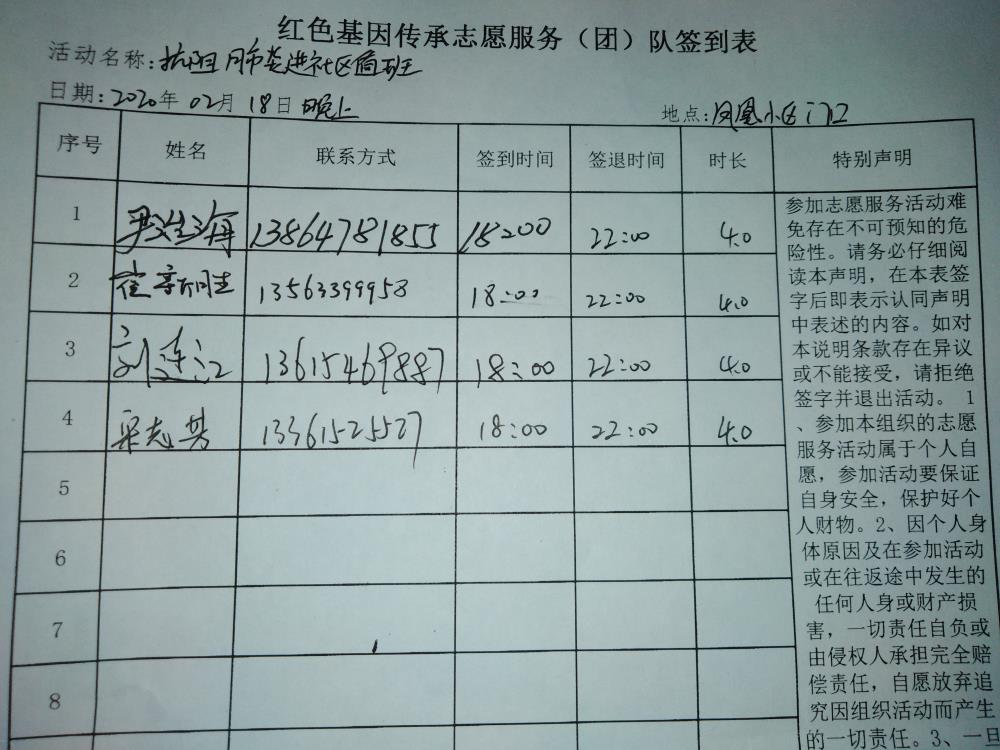 红色基因传承志愿服务（团）队签到表
活动名称：抗疫 进社区值班
日期：2020年 02月 18日 晚上
地点：凤凰小区门口
序号 姓名 联系方式 签到时间 签退时间 时长 特别声明
1 13864781855 18:00 22:00 4.0
2 13563399958 18:00 22:00 4.0
3 刘连江 13615469887 18:00 22:00 4.0
4 梁志芳 13361525527 18:00 22:00 4.0
5
6
7
8
参加志愿服务活动难
免存在不可预知的危
险性。请务必仔细阅
读本声明，在本表签
字后即表示认同声明
中表述的内容。如对
本说明条款存在异议
或不能接受，请拒绝
签字并退出活动。 1
、参加本组织的志愿
服务活动属于个人自
愿，参加活动要保证
自身安全，保护好个
人财物。2、因个人身
体原因及在参加活动
或在往返途中发生的
任何人身或财产损
害，一切责任自负或
由侵权人承担完全赔
偿责任，自愿放弃追
究因组织活动而产生
的一切责任。3、一旦